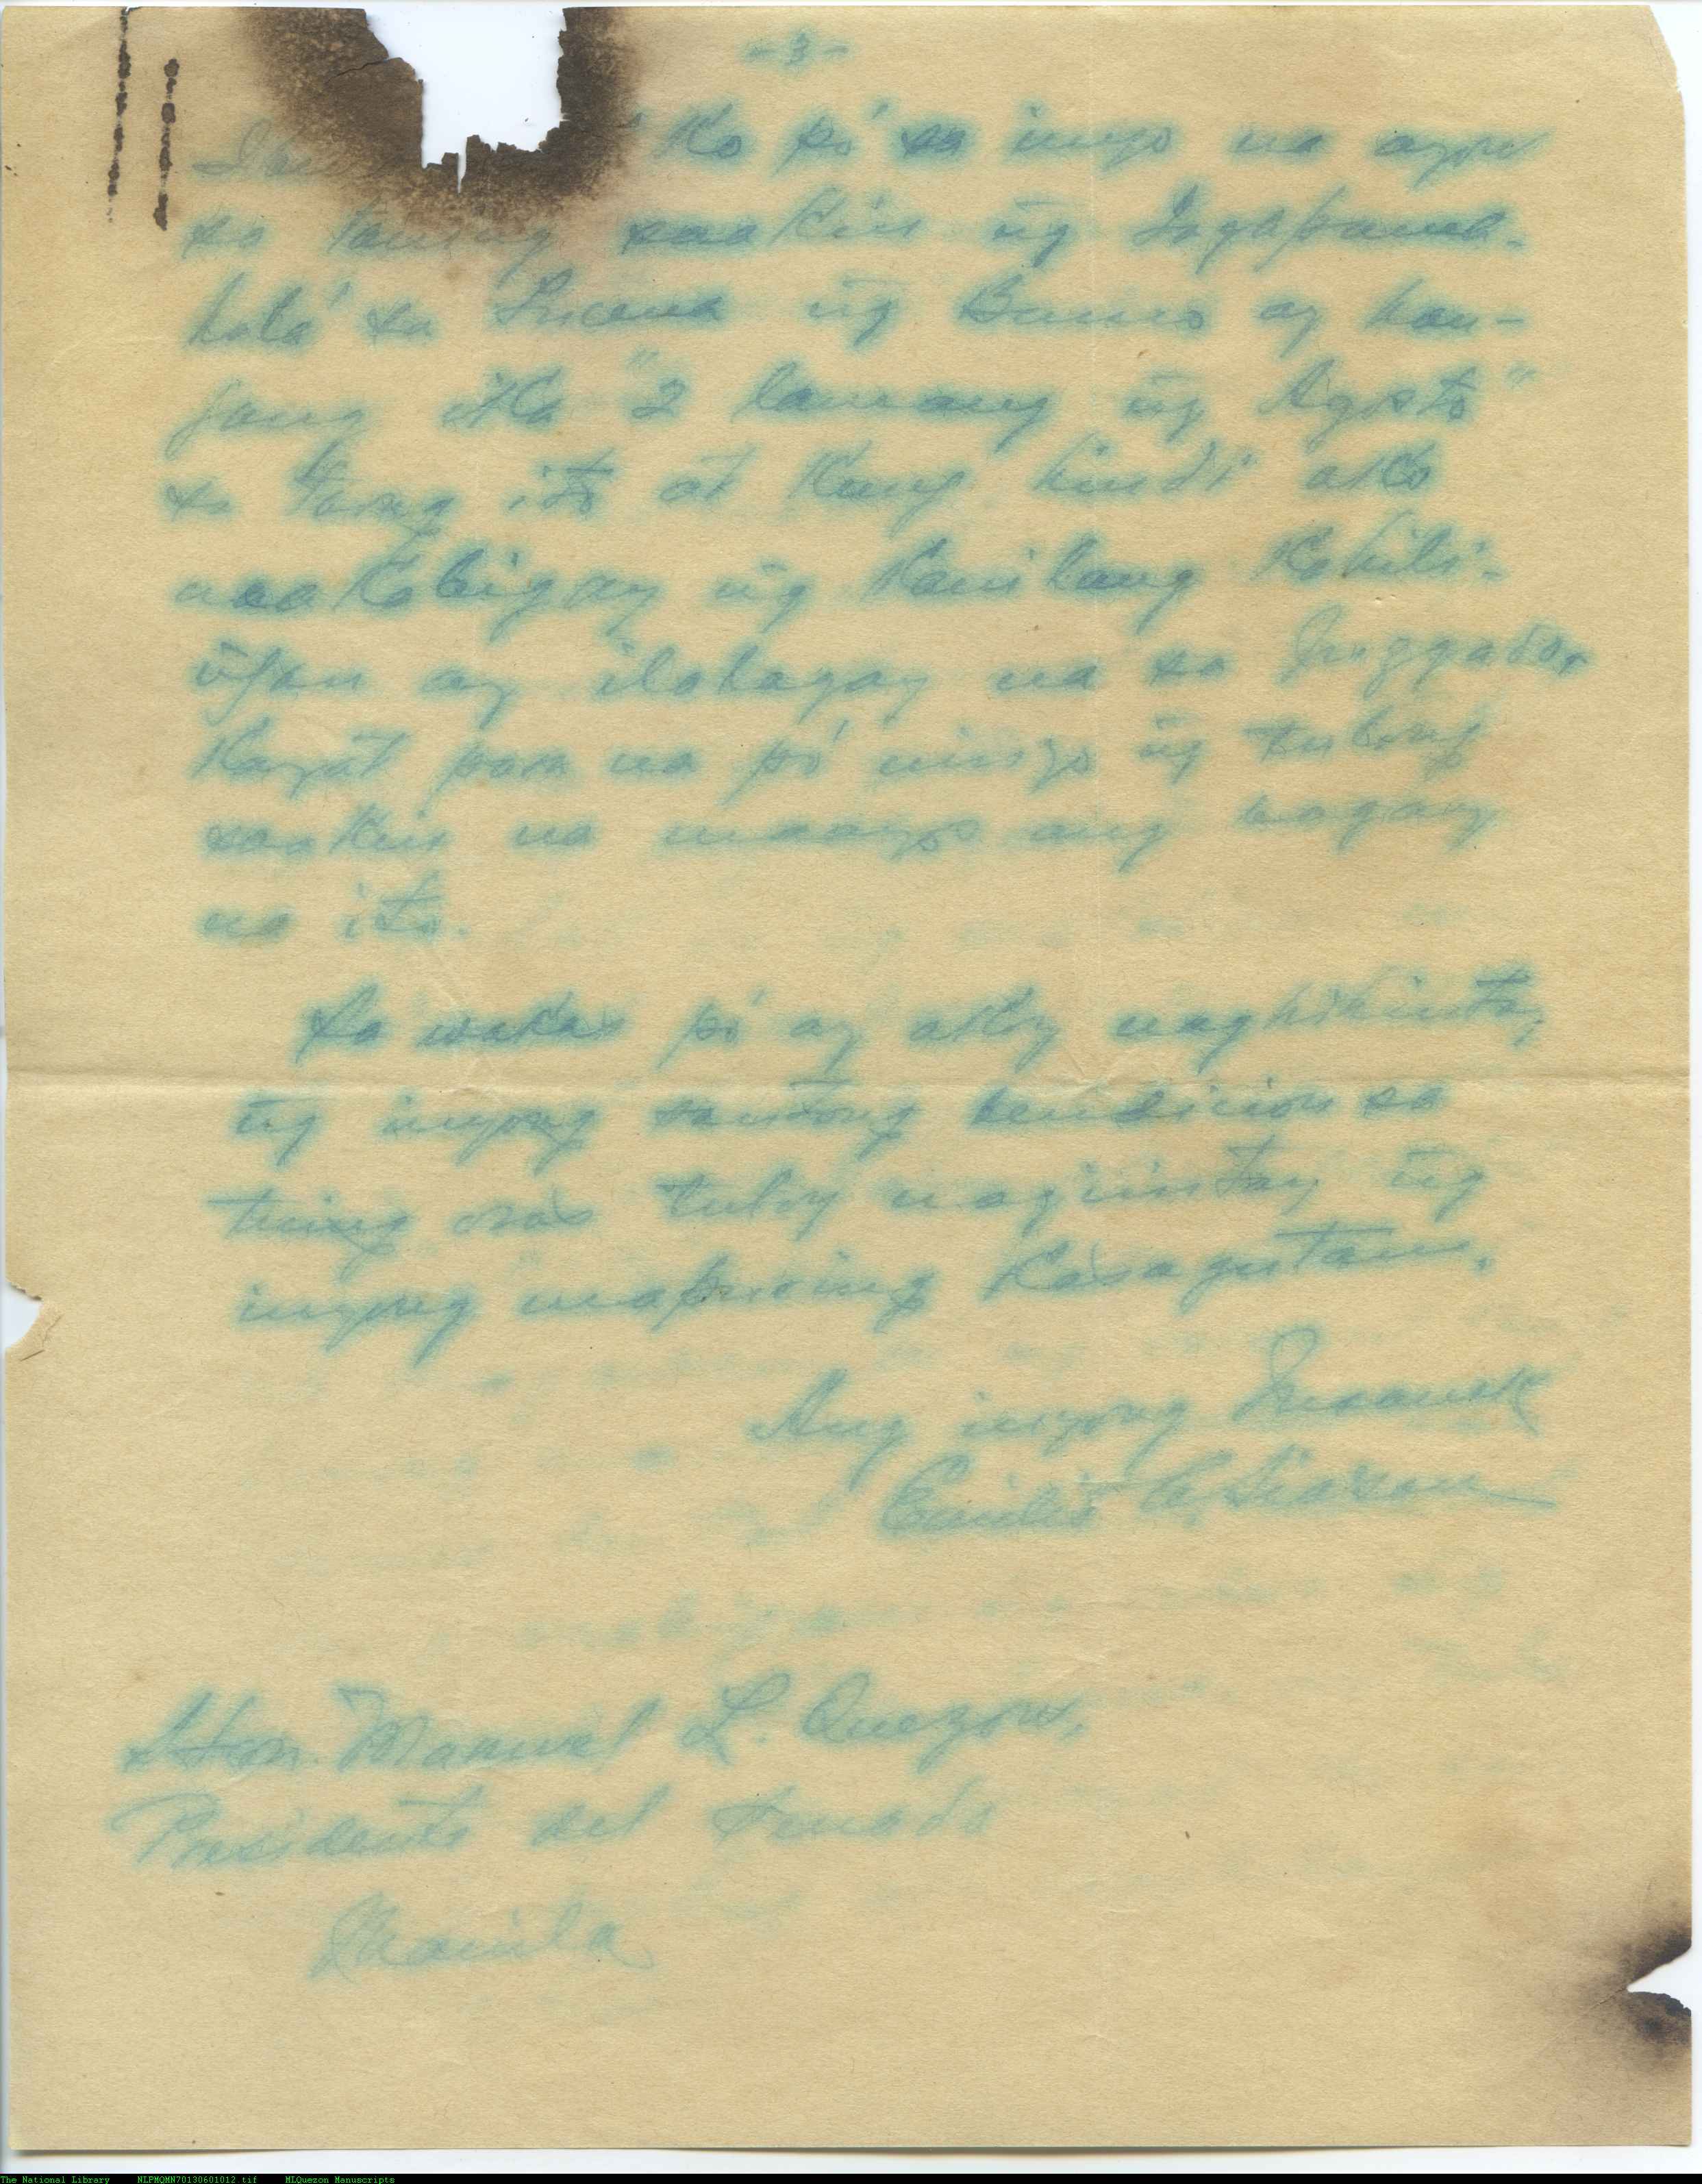 -3-
ko pó sa inyo na ayon
sa taning saakin ng Tagapama-
halá sa Lucena ng Banco ay han-
gang ika "2 lamang ng Agosto"
sa Taong ito at kung hindi ako
makabigay ng kanilang kahili-
ñgan ay ilalagay na sa Juzgado.
Kayat para na pó ninyo ng tulong
saakin na maayos ang bagay
na ito.
Sa wakas pó ay ako'y naghihintay
ng inyong santong bendicion sa
tuing oras tuloy nagiintay ng
inyong mapuring kasagutan.
Ang inyong Inaanak
Emilio C. Siason
Hon. Manuel L. Quezon,
Presidente del Senado
Manila
The National Library NLPMQMN70130601012.tif MLQuezon Manuscripts